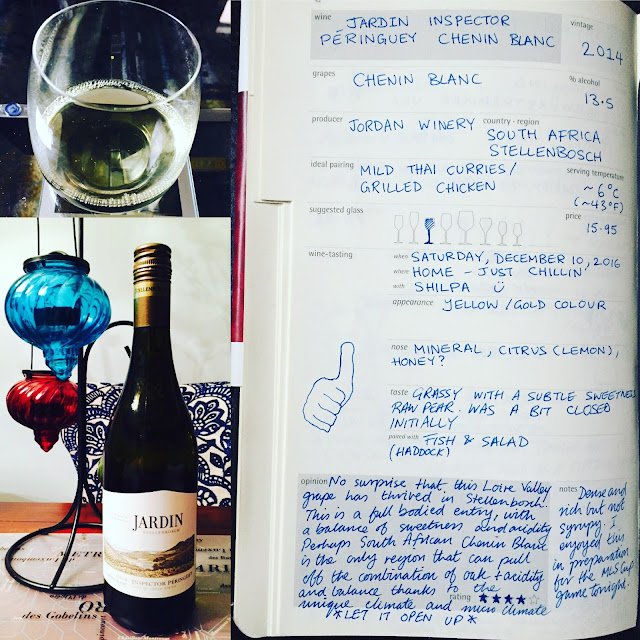 wine
JARDIN INSPECTOR
PÉRINGUEY CHENIN BLANC
vintage
2014
grapes
CHENIN BLANC
% alcohol
13.5
producer
JORDAN WINERY
country - region
SOUTH AFRICA
STELLENBOSCH
ideal pairing
MILD THAI CURRIES/
GRILLED CHICKEN
serving temperature
~6°C
(~43°F)
suggested glass
price
15.95
wine-tasting
when SATURDAY, DECEMBER 10, 2016
where HOME - JUST CHILLIN'
with SHILPA
appearance YELLOW/GOLD COLOUR
nose MINERAL, CITRUS (LEMON),
HONEY?
taste GRASSY WITH A SUBTLE SWEETNESS
RAW PEAR. WAS A BIT CLOSED
INITIALLY
paired with FISH & SALAD
(HADDOCK)
opinion No surprise that this Loire Valley
grape has thrived in Stellenbosch.
This is a full bodied entry, with
a balance of sweetness and acidity
Perhaps South African Chenin Blanc
is the only region that can pull
off the combination of oak + acidity
and balance thanks to the
unique climate and micro climate
*LET IT OPEN UP*
rating ★★★★☆
notes Dense and
rich but not
syrupy. I
enjoyed this
in preparation
for the MLS Cup
game tonight.
JARDIN
STELLENBOSCH
INSPECTOR PÉRINGUEY
METR
RO
des Gobelins